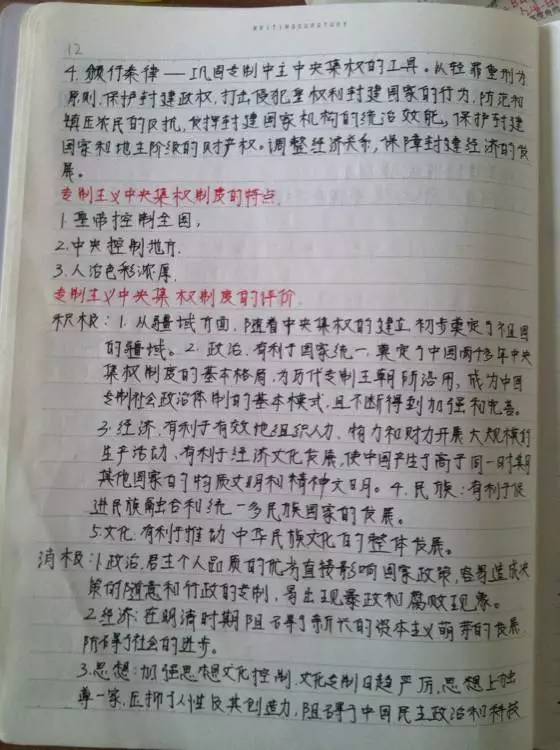 12
4. 颁行秦律——巩固专制中主中央集权的工具。从轻罪重刑为
原则,保护封建政权,打击侵犯皇权和封建国家的行为,防范和
镇压农民的反抗,发挥封建国家机构的统治效能,保护封建
国家和地主阶级的财产权。调整经济关系,保障封建经济的发
展。
专制主义中央集权制度的特点
1.皇帝控制全国,
2.中央控制地方.
3.人治色彩浓厚.
专制主义中央集权制度的评价
积极:1.从疆域方面,随着中央集权的建立,初步奠定了祖国
的疆域。2.政治,有利于国家统一,奠定了中国两千多年中央
集权制度的基本格局,为历代专制王朝所沿用,成为中国
专制社会政治体制的基本模式,且不断得到加强和完善。
3.经济,有利于有效地组织人力、物力和财力开展大规模的
生产活动,有利于经济文化发展,使中国产生了高于同一时期
其他国家的物质文明和精神文明。4.民族:有利于促
进民族融合和统一多民族国家的发展。
5.文化,有利于推动中华民族文化的整体发展。
消极:1.政治,君主个人品质的优劣直接影响国家政策,容易造成决
策的随意和行政的专制,易出现暴政和腐败现象。
2.经济:在明清时期阻碍了新代的资本主义萌芽的发展.
阻碍了社会的进步。
3.思想:加强思想文化控制,文化专制日趋严厉,思想上独
尊一家,压抑了人性及其创造力,阻碍了中国民主政治和科技